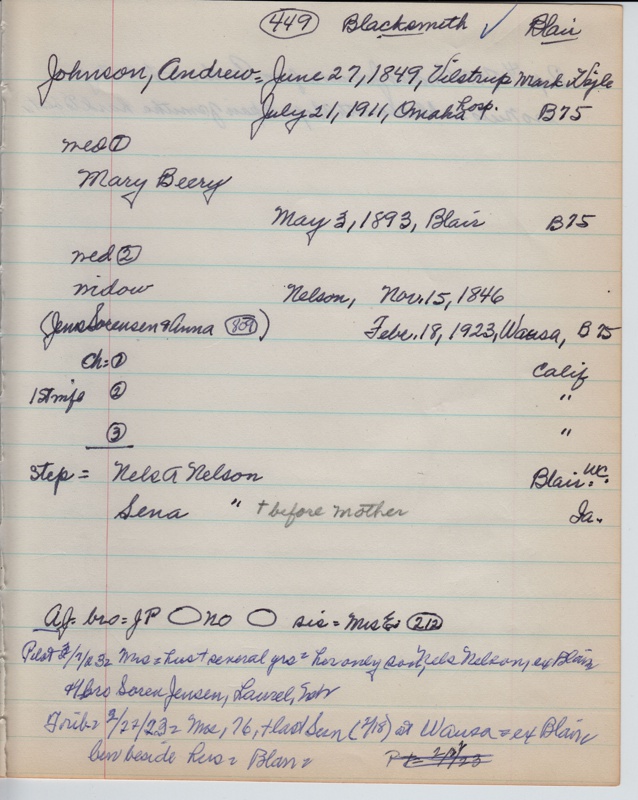 449 Blacksmith ✓ Blair
Johnson, Andrew = June 27, 1849, Vilstrup Mark
July 21, 1911, Omaha Hosp. B75
med ①
Mary Beery
May 3, 1893, Blair B75
med ②
widow Nelson, Nov. 15, 1846
(Jens Sorensen & Anna 809) Febr. 18, 1923, Wausa, B75
Ch = ① Calif
1st wife ② "
③ "
Step = Nels A Nelson Blair. WC.
Sena " + before mother Ia.
AJ = bro = JP no sis = Mrs E 212
Pilot = Mrs = hus + several yrs = her only son, Nels Nelson, ex Blair
bro Soren Jensen, Laurel, Nebr
Trib = 2/22/23 = Mrs, 76, + last Sun (2/18) at Wausa = ex Blair
bur beside hus = Blair =